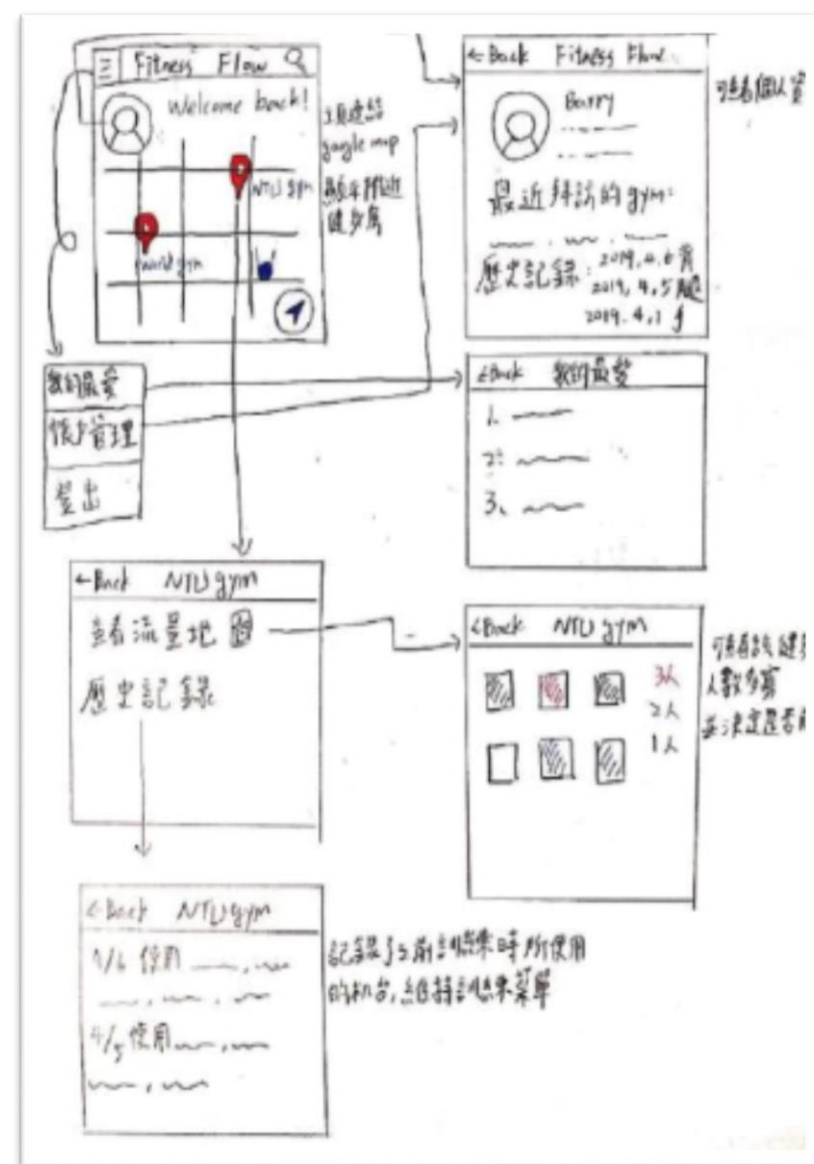 Fitness Flow
Welcome back!
NTU gym
World gym
google map
顯示附近
健身房
我的最愛
帳戶管理
登出
←Back Fitness Flow
Barry
最近拜訪的gym:
歷史記錄: 2019.4.6 背
2019.4.5 腿
2019.4.1
可查看個人資
←Back 我的最愛
1.
2.
3.
←Back NTU gym
查看流量地圖
歷史記錄
←Back NTU gym
3人
2人
1人
可查看該健身
人數多寡
並決定是否
←Back NTU gym
4/6 使用
4/5 使用
記錄了之前訓練時所使用
的机台,維持訓練菜單